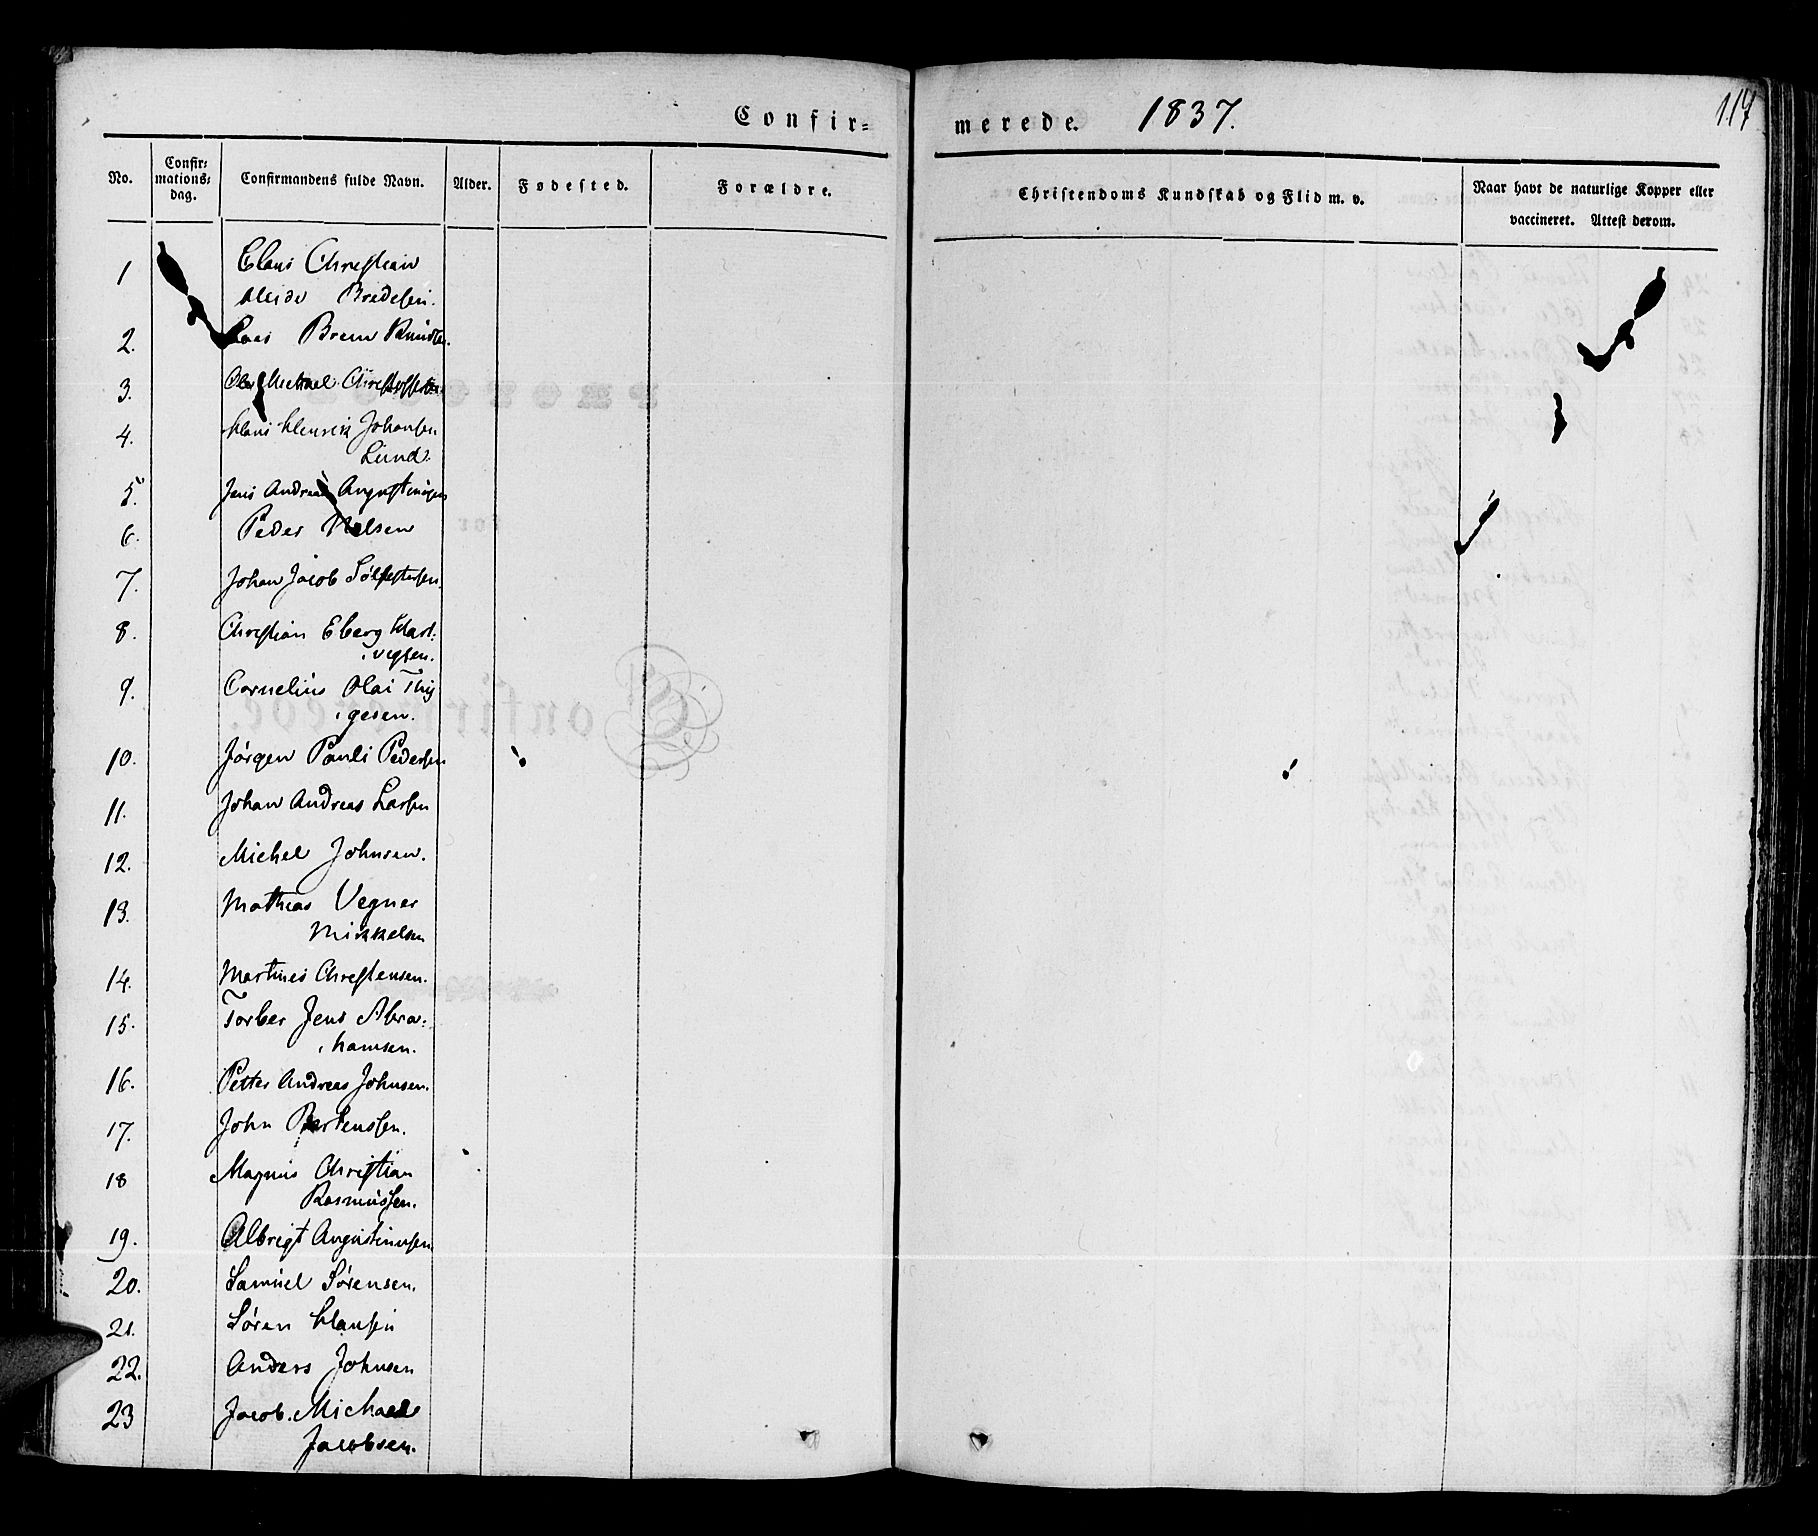 Confir= merede. 1837. 117
No. Confir= mations= dag. Confirmandens fulde Navn. Alder. Fødested. Forældre. Christendoms Kundskab og Flid m. v. Naar havt de naturlige Kopper eller vaccineret. Attest derom.
1 Claus Christian
Heide Bredesen.
2. Claes Brem Knudts.
3. Ole Michael Christoffersen
4. Hans Henrik Johansen
Lund.
5. Jens Andreas Augustinusen
6. Peder Nelsen
7. Johan Jacob Sölfestersen.
8. Christian Eberg Hart:
vigsen.
9. Cornelius Olai Thij
gesen.
10. Jörgen Pauli Pedersen
11. Johan Andreas Larsen
12. Michel Johnsen.
13. Mathias Vegner
Mikkelsen
14. Martines Christensen.
15. Torber Jens Abra:
hamsen.
16. Petter Andreas Johnsen.
17. John Bertenssen.
18 Magnus Christian
Rasmussen.
19. Albrigt Augustinusen
20. Samuel Sörensen.
21. Sören Hansen
22. Anders Johnsen
23 Jacob Michael
Jacobsen.